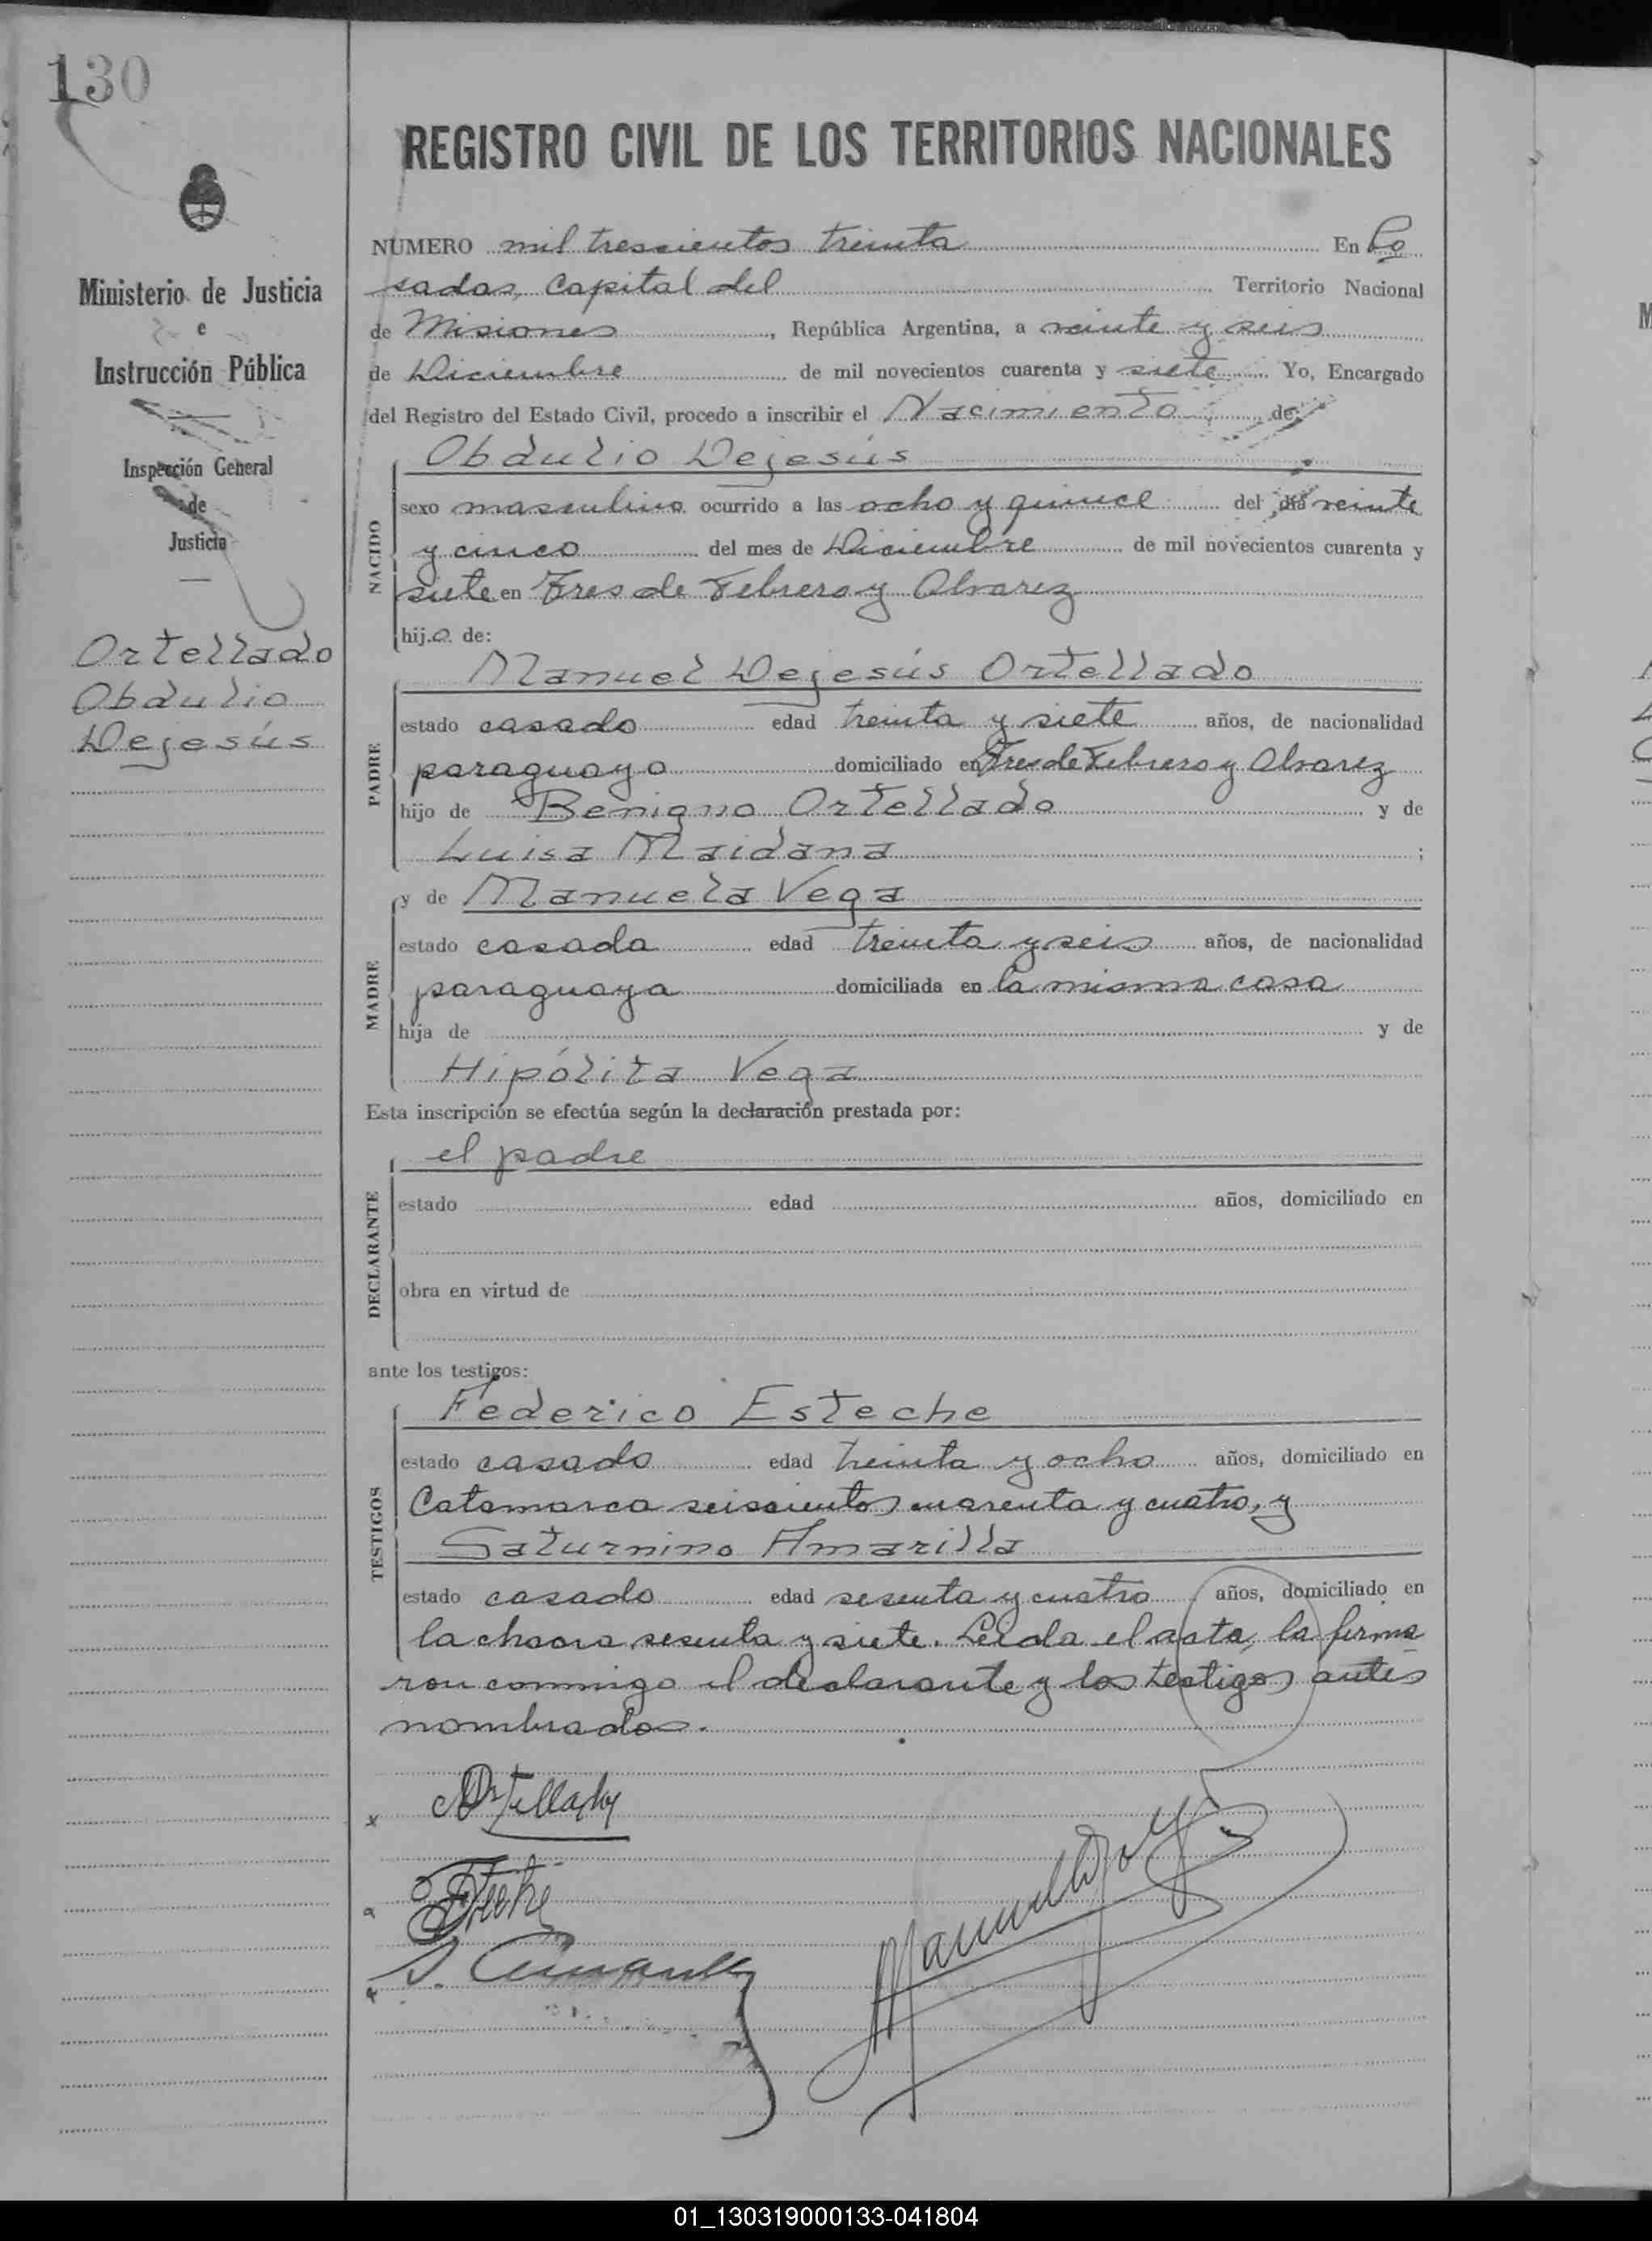 130
REGISTRO CIVIL DE LOS TERRITORIOS NACIONALES
Ministerio de Justicia
e
Instrucción Pública
Inspección General
de
Justicia
Ortellado
Obdulio
Dejesús
NUMERO mil trescientos treinta En Po
sadas, Capital del Territorio Nacional
de Misiones, República Argentina, a veinte y seis
de Diciembre de mil novecientos cuarenta y siete Yo, Encargado
del Registro del Estado Civil, procedo a inscribir el Nacimiento de:
Obdulio Dejesús
NACIDO
sexo masculino ocurrido a las ocho y quince del día veinte
y cinco del mes de Diciembre de mil novecientos cuarenta y
siete en Tres de Febrero y Alvarez
hijo de:
Manuel Dejesús Ortellado
PADRE
estado casado edad treinta y siete años, de nacionalidad
paraguayo domiciliado en Tres de Febrero y Alvarez
hijo de Benigno Ortellado y de
Luisa Maidana ;
y de Manuela Vega
MADRE
estado casada edad treinta y seis años, de nacionalidad
paraguaya domiciliada en la misma casa
hija de y de
Hipólita Vega
Esta inscripción se efectúa según la declaración prestada por:
el padre
DECLARANTE
estado edad años, domiciliado en
obra en virtud de
ante los testigos:
Federico Esteche
TESTIGOS
estado casado edad treinta y ocho años, domiciliado en
Catamarca seiscientos cuarenta y cuatro, y
Saturnino Amarilla
estado casado edad sesenta y cuatro años, domiciliado en
la chacra sesenta y siete. Leída el acta, la firma
ron conmigo el declarante y los testigos antes
nombrados.
01_130319000133-041804